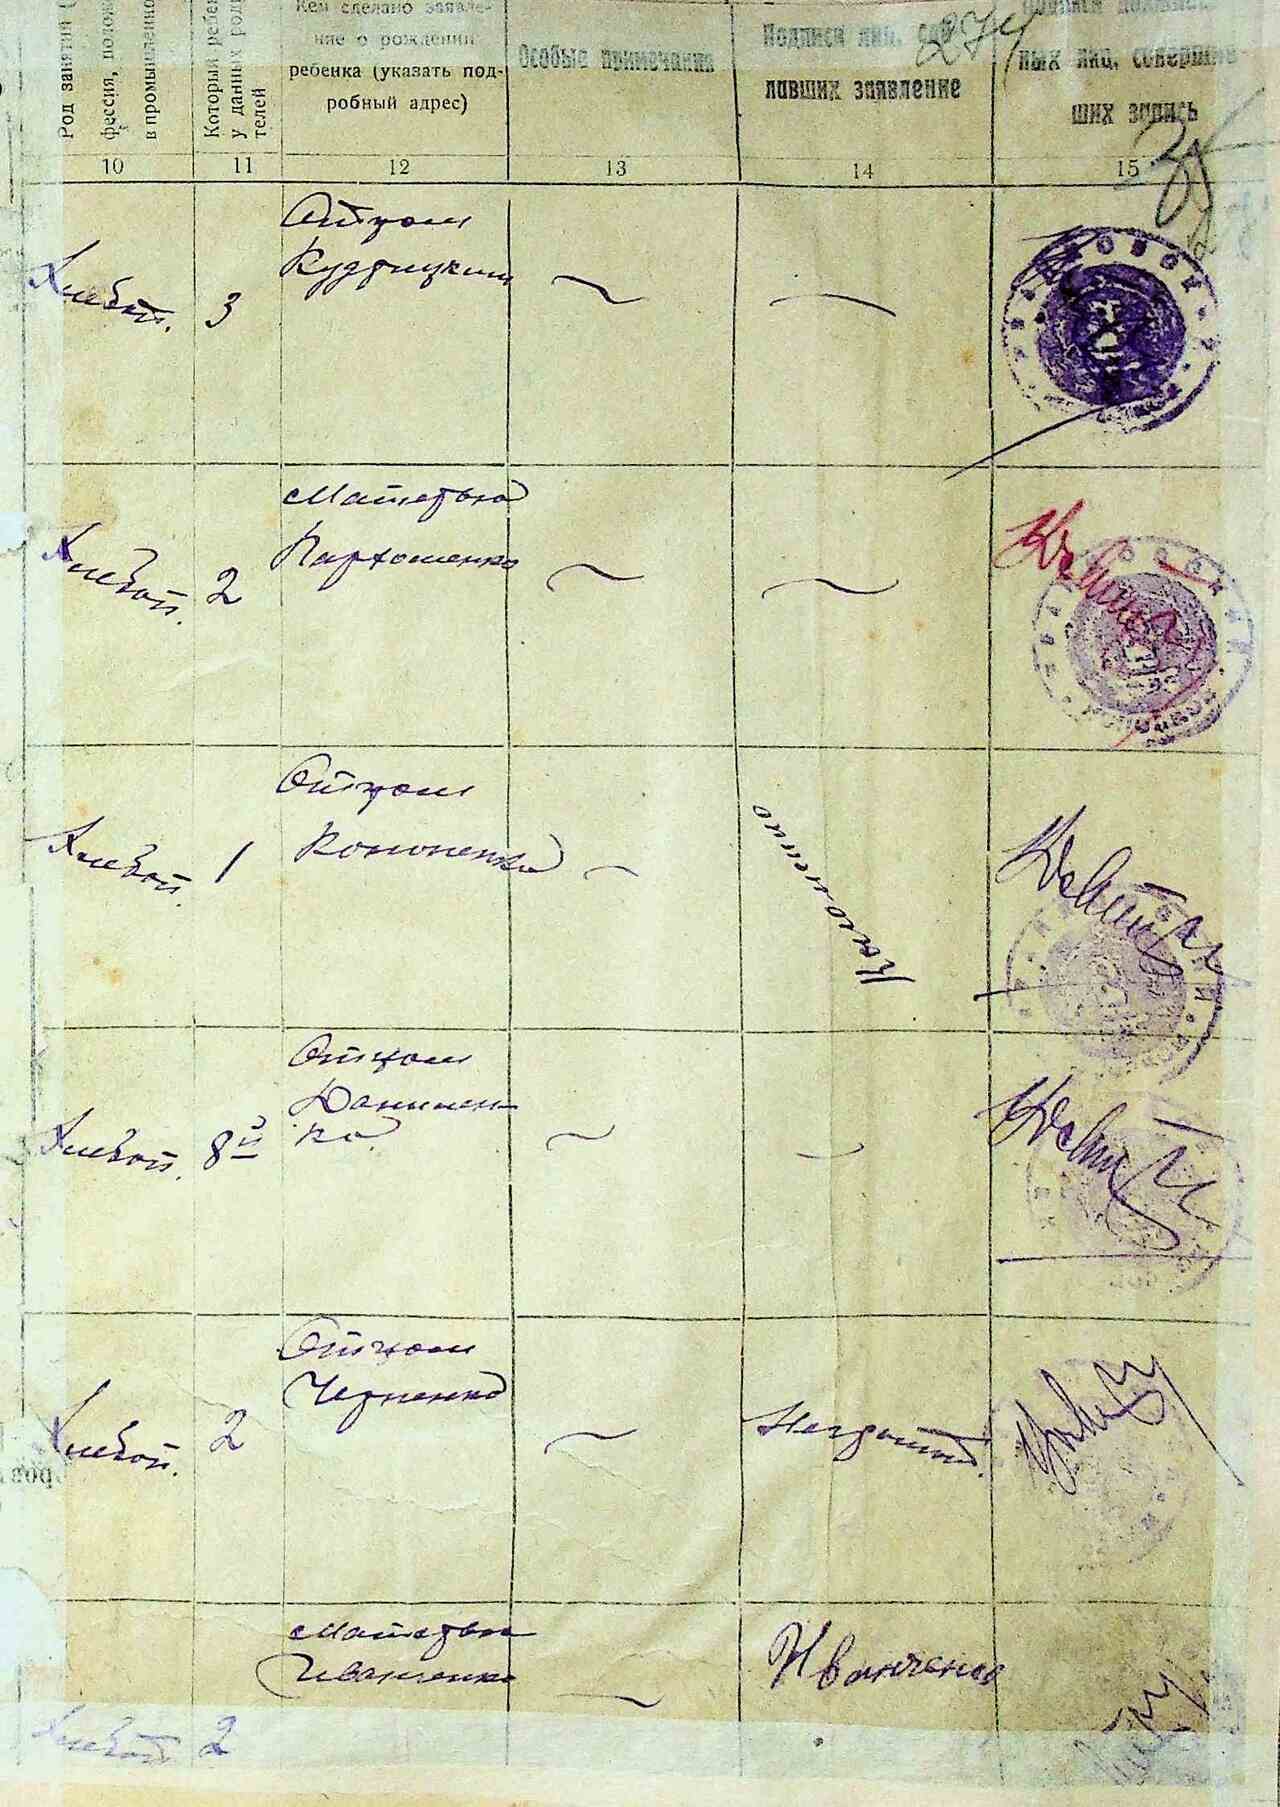 Род занятий (
фессия, полож
в промышленно
Который ребен
у данных роди
телей
Кем сделано заявле-
ние о рождении
ребенка (указать под-
робный адрес)
Особые примечания
Подписи лиц, сде-
лавших заявление
274
ных лиц, соверши
ших запись
10
11
12
13
14
15
Хлебоп.
3
Отцом
Кудрицким
Хлебоп.
2
Матерью
Пархоменко
Хлебоп.
1
Отцом
Кононенко
Кононенко
Хлебоп.
8й
Отцом
Данилен-
ко
Хлебоп.
2
Отцом
Черненко
Неграмотн.
Хлебоп
2
Матерью
Иванченко
Иванченко